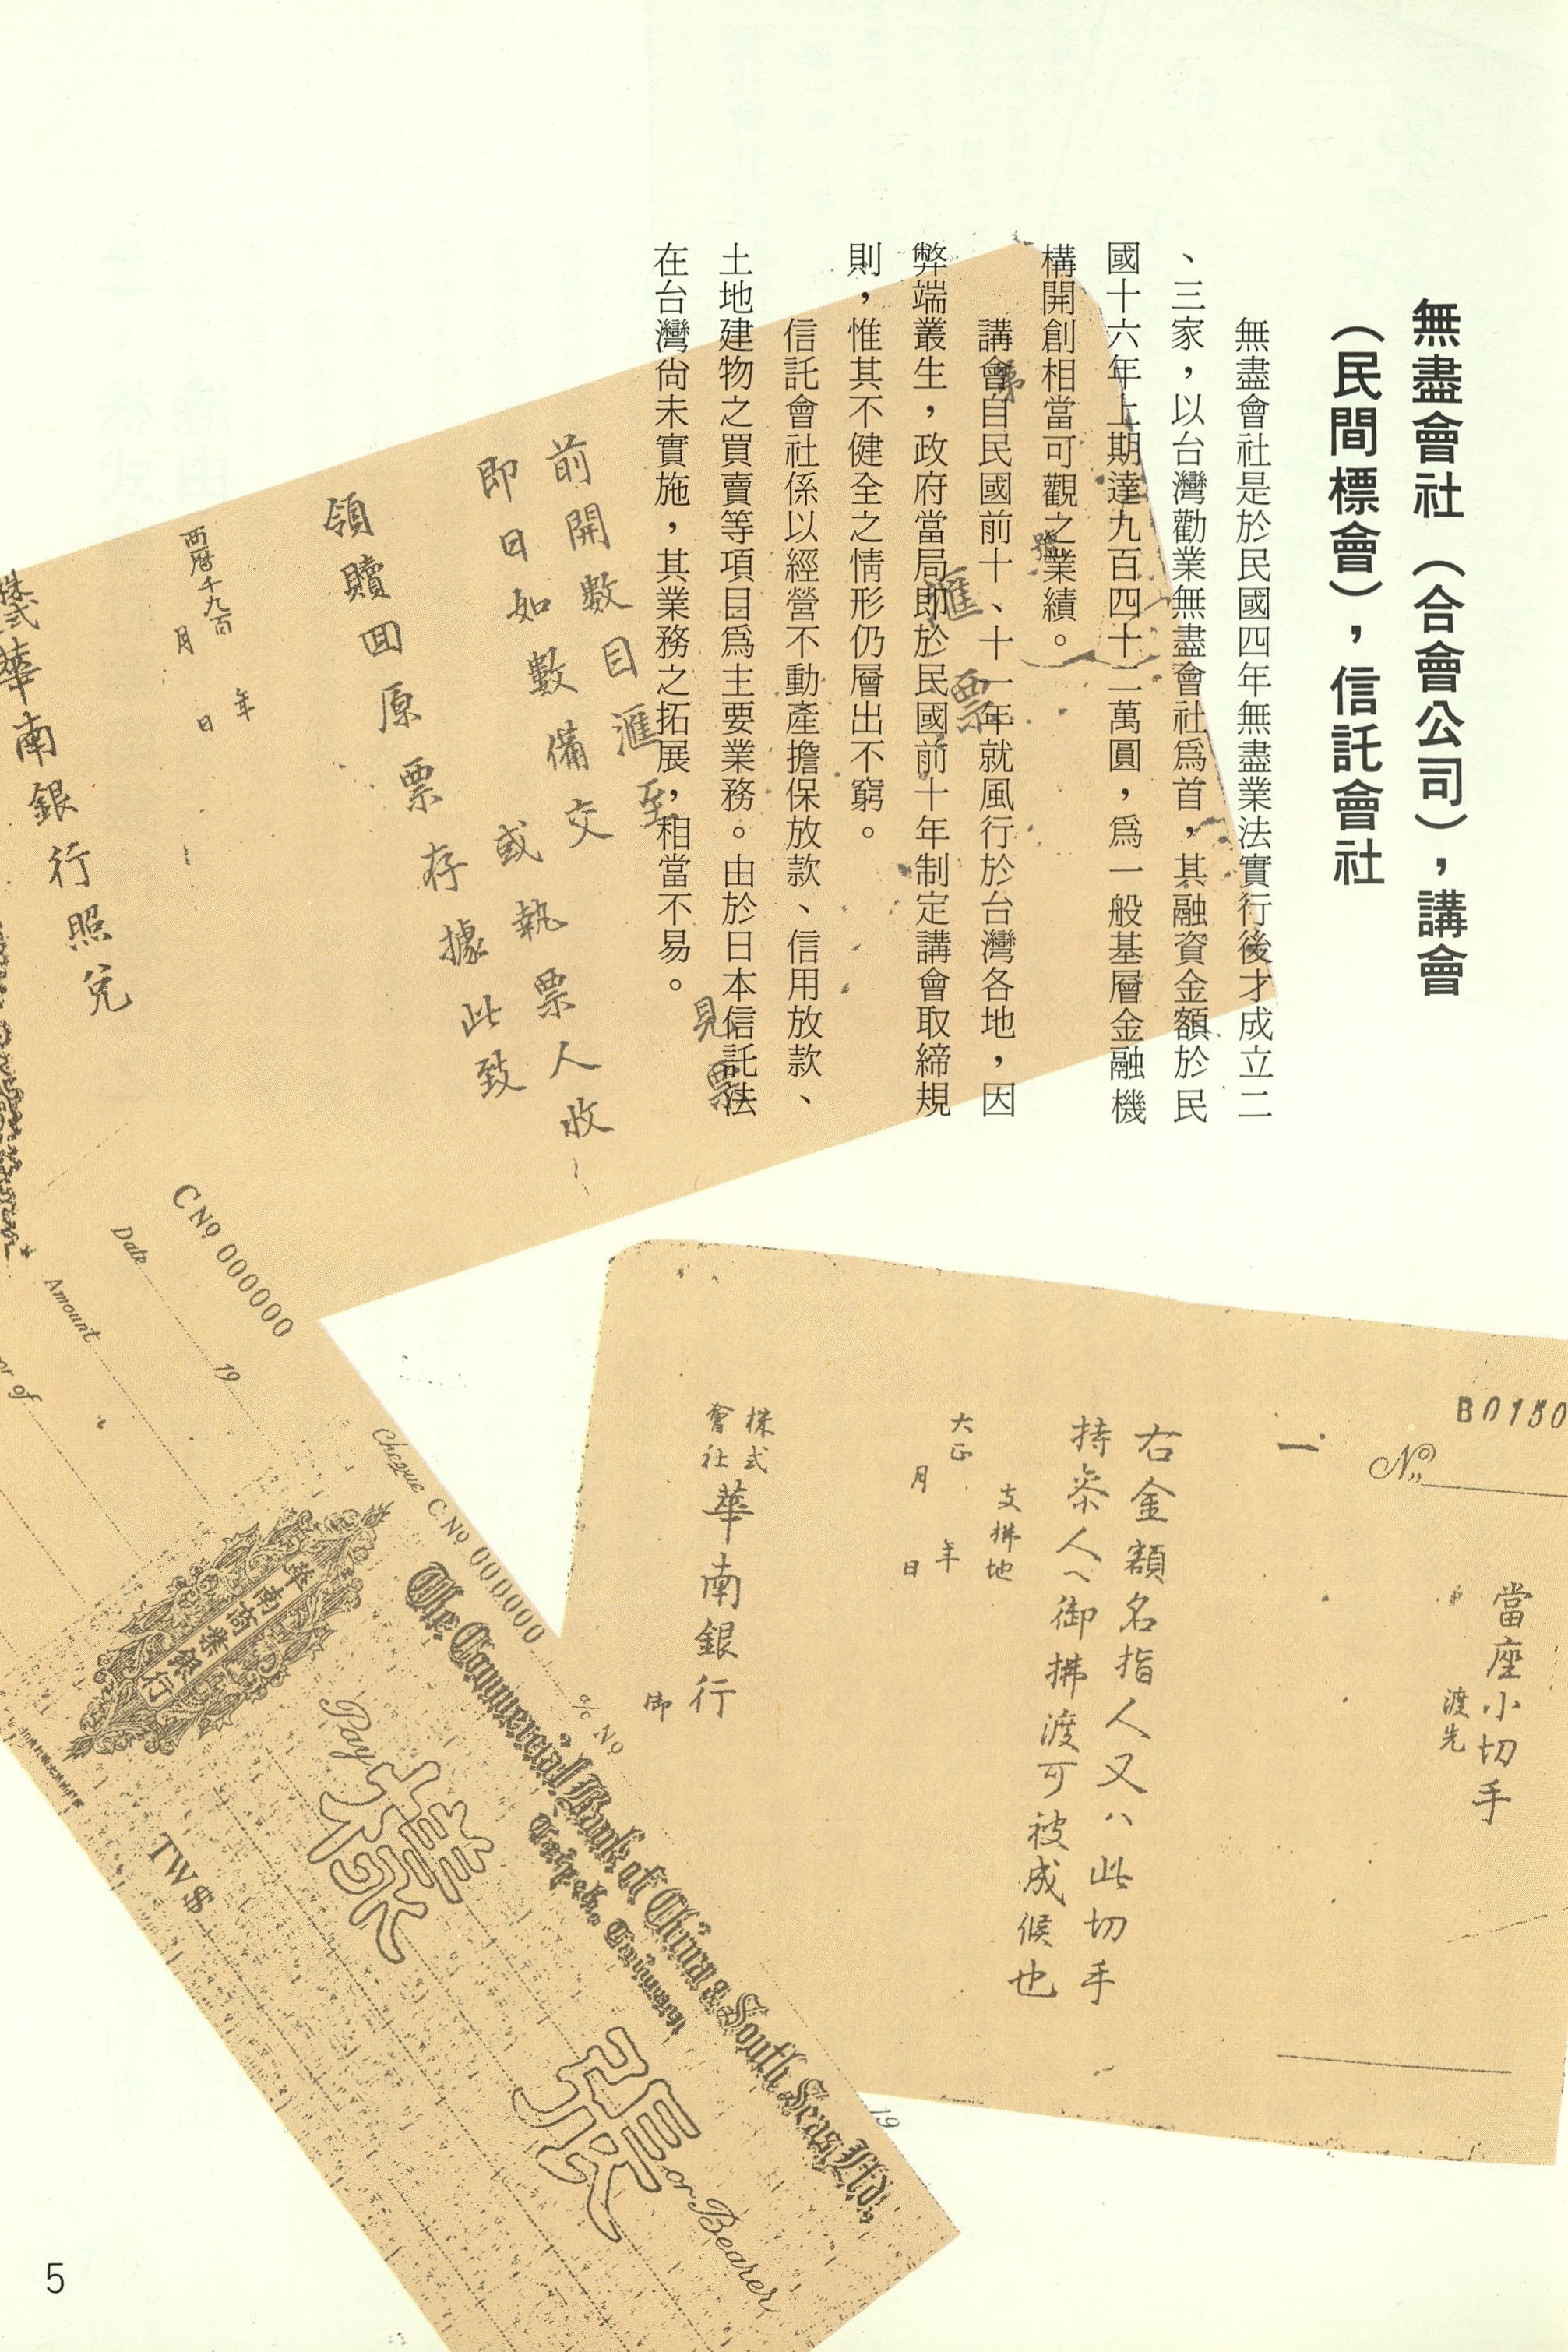 無盡會社（合會公司），講會
（民間標會），信託會社
無盡會社是於民國四年無盡業法實行後才成立二
、三家，以台灣勸業無盡會社爲首，其融資金額於民
國十六年上期達九百四十二萬圓，爲一般基層金融機
構開創相當可觀之業績。
講會自民國前十、十一年就風行於台灣各地，因
弊端叢生，政府當局即於民國前十年制定講會取締規
則，惟其不健全之情形仍層出不窮。
信託會社係以經營不動產擔保放款、信用放款、
土地建物之買賣等項目爲主要業務。由於日本信託法
在台灣尙未實施，其業務之拓展，相當不易。
第
號
匯票
見票
前開數目滙至
即日如數備交
或執票人收
領贖回原票存據此致
西曆千九百
年
月
日
株式
華南銀行照兌
B0150
No.
當座小切手
渡先
一
右金額名指人又ハ此切手
持參人ヘ御拂渡可被成候也
支拂地
大正
年
月
日
株式
會社
華南銀行
御
C No 000000
Date
19
Amount
or of
Cheque C No 000000
a/c No
華南商業銀行
The Commercial Bank of China & South Seas Ltd.
Taipeh, Taiwan
19
Pay
or Bearer
TW$
樣
張
5